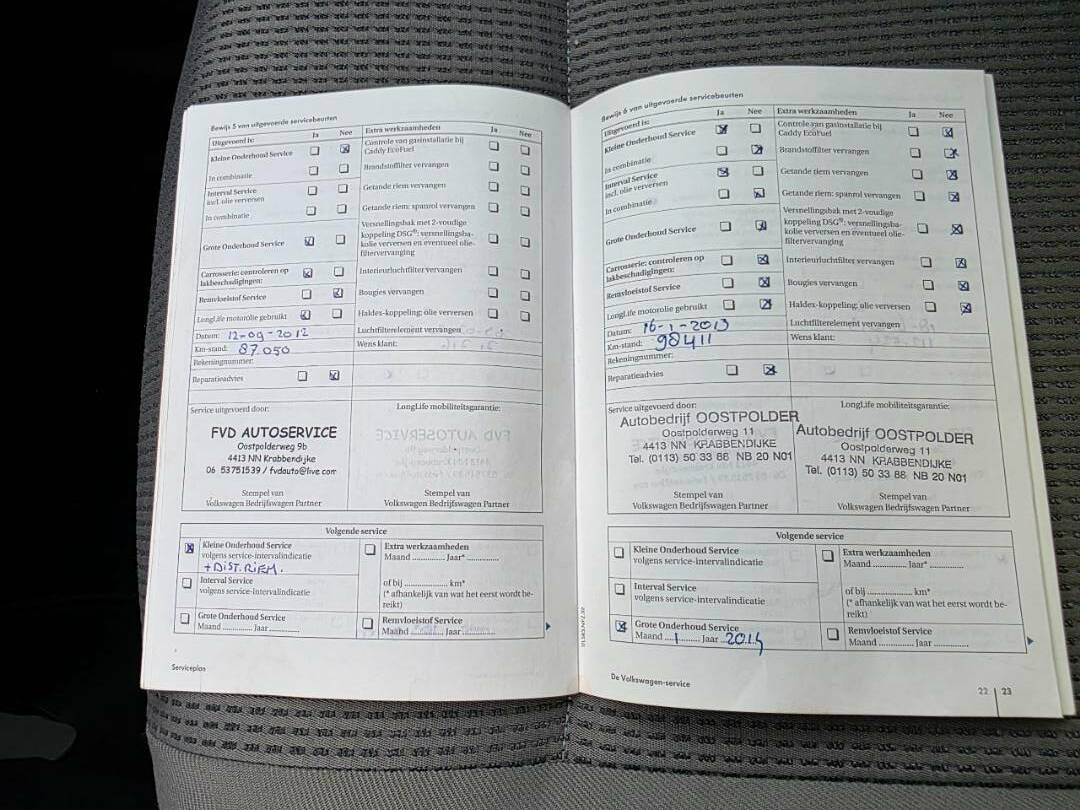 Bewijs 5 van uitgevoerde servicebeurten
Uitgevoerd is: Ja Nee Extra werkzaamheden Ja Nee
Kleine Onderhoud Service
Controle van gasinstallatie bij
Caddy EcoFuel
In combinatie
Brandstoffilter vervangen
Interval Service
incl. olie verversen
Getande riem vervangen
In combinatie
Getande riem: spanrol vervangen
Grote Onderhoud Service
Versnellingsbak met 2-voudige
koppeling DSG®: versnellingsba-
kolie verversen en eventueel olie-
filtervervanging
Carrosserie: controleren op
lakbeschadigingen:
Interieurluchtfilter vervangen
Remvloeistof Service
Bougies vervangen
LongLife motorolie gebruikt
Haldex-koppeling: olie verversen
Datum: 12-09-2012
Luchtfilterelement vervangen
Km-stand: 87.050
Wens klant:
Rekeningnummer:
Reparatieadvies
Service uitgevoerd door:
LongLife mobiliteitsgarantie:
FVD AUTOSERVICE
Oostpolderweg 9b
4413 NN Krabbendijke
06 53751539 / fvdauto@live.com
Stempel van
Volkswagen Bedrijfswagen Partner
Stempel van
Volkswagen Bedrijfswagen Partner
Volgende service
Kleine Onderhoud Service
volgens service-intervalindicatie
+ DIST. RIEM.
Extra werkzaamheden
Maand .............. Jaar* ..............
Interval Service
volgens service-intervalindicatie
of bij .................... km*
(* afhankelijk van wat het eerst wordt be-
reikt)
Grote Onderhoud Service
Maand ............ Jaar ..............
Remvloeistof Service
Maand ............ Jaar ..............
Serviceplan
Bewijs 6 van uitgevoerde servicebeurten
Uitgevoerd is: Ja Nee Extra werkzaamheden Ja Nee
Kleine Onderhoud Service
Controle van gasinstallatie bij
Caddy EcoFuel
In combinatie
Brandstoffilter vervangen
Interval Service
incl. olie verversen
Getande riem vervangen
In combinatie
Getande riem: spanrol vervangen
Grote Onderhoud Service
Versnellingsbak met 2-voudige
koppeling DSG®: versnellingsba-
kolie verversen en eventueel olie-
filtervervanging
Carrosserie: controleren op
lakbeschadigingen:
Interieurluchtfilter vervangen
Remvloeistof Service
Bougies vervangen
LongLife motorolie gebruikt
Haldex-koppeling: olie verversen
Datum: 16-1-2013
Luchtfilterelement vervangen
Km-stand: 98411
Wens klant:
Rekeningnummer:
Reparatieadvies
Service uitgevoerd door:
LongLife mobiliteitsgarantie:
Autobedrijf OOSTPOLDER
Oostpolderweg 11
4413 NN KRABBENDIJKE
Tel. (0113) 50 33 86 NB 20 N01
Autobedrijf OOSTPOLDER
Oostpolderweg 11
4413 NN KRABBENDIJKE
Tel. (0113) 50 33 86 NB 20 N01
Stempel van
Volkswagen Bedrijfswagen Partner
Stempel van
Volkswagen Bedrijfswagen Partner
Volgende service
Kleine Onderhoud Service
volgens service-intervalindicatie
Extra werkzaamheden
Maand .............. Jaar* ..............
Interval Service
volgens service-intervalindicatie
of bij .................... km*
(* afhankelijk van wat het eerst wordt be-
reikt)
Grote Onderhoud Service
Maand 1 Jaar 2014
Remvloeistof Service
Maand ............ Jaar ..............
De Volkswagen-service
22 | 23